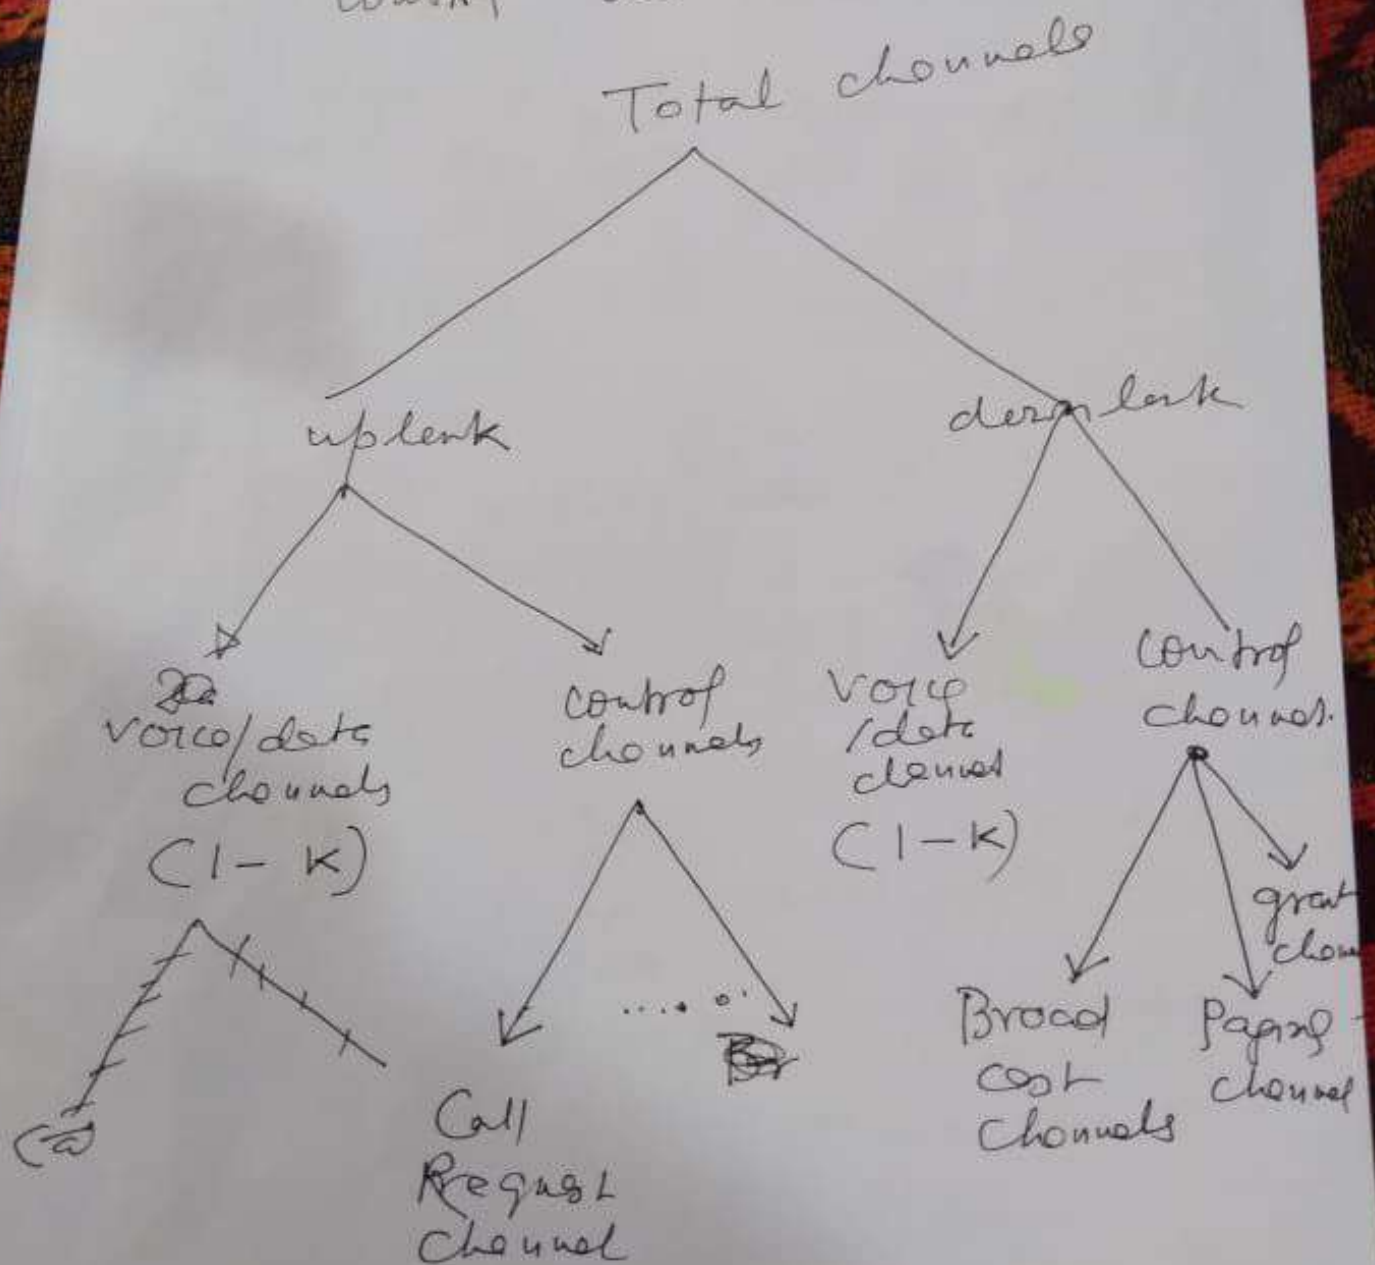 Total channels
uplink
downlink
voice/data
channels
(1-K)
control
channels
Voice
/data
channel
(1-K)
control
channel.
grant
chann
Call
Request
channel
.....
Broad
cast
channels
Paging
channel